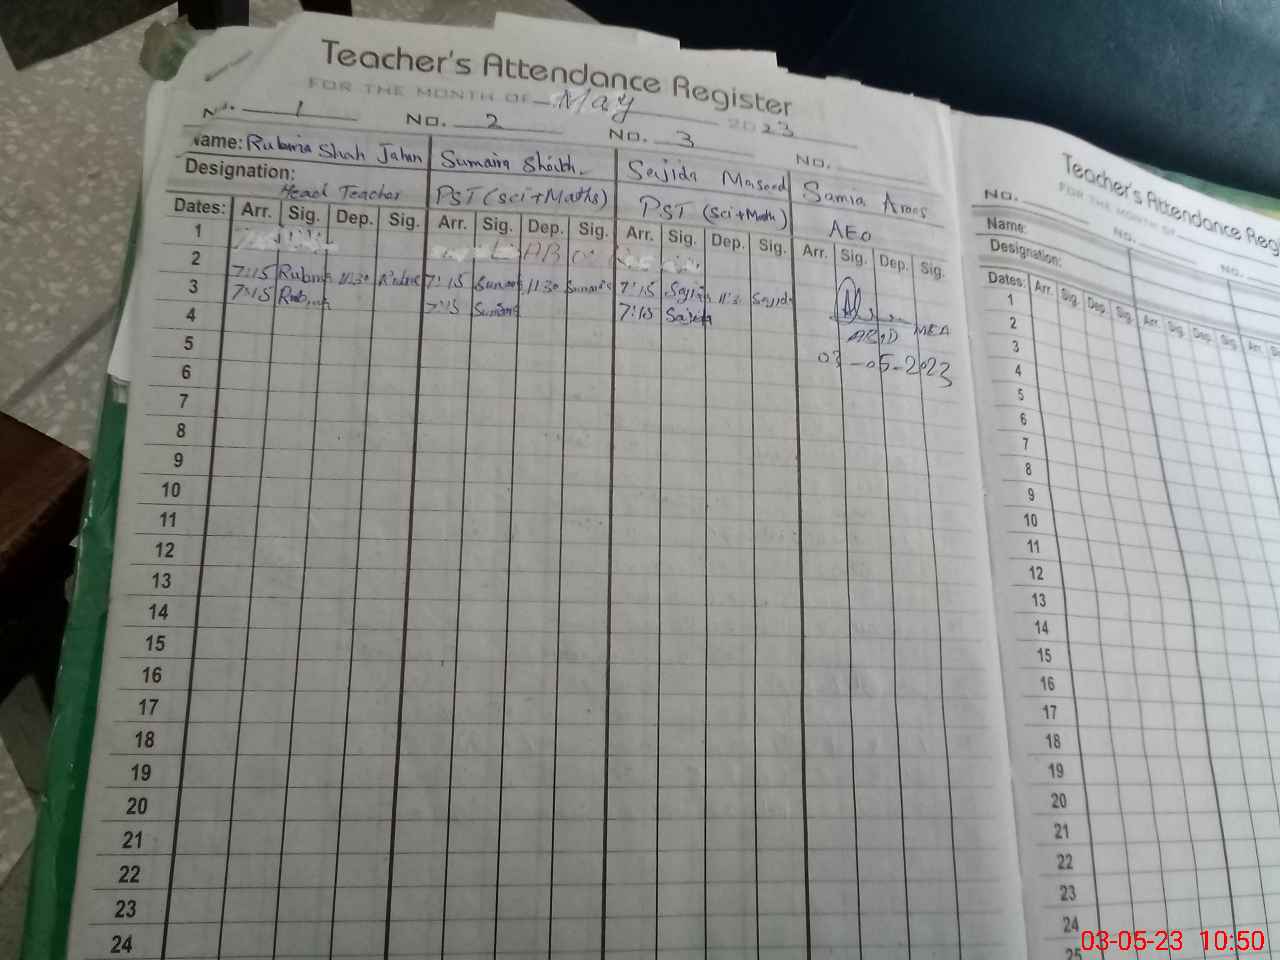 Teacher's Attendance Register
FOR THE MONTH OF May 2023
No. 1 No. 2 No. 3 No.
Name: Rubina Shah Jahan Sumaira Shaikh Sajida Masood Samia
Designation: Head Teacher PST (Sci+Maths) PST (Sci+Math) AEO
Dates: Arr. Sig. Dep. Sig. Arr. Sig. Dep. Sig. Arr. Sig. Dep. Sig. Arr. Sig. Dep. Sig.
1
2 7:15 Rubina 11:30 7:15 11:30 7:15 Sajida
3 7:15 Rubina 7:15 7:15 Sajida
4 MEA
5 03-05-2023
6
7
8
9
10
11
12
13
14
15
16
17
18
19
20
21
22
23
24
Teacher's Attendance Reg
FOR THE MONTH OF
No. No. No.
Name:
Designation:
Dates: Arr. Sig. Dep. Sig. Arr. Sig. Dep. Sig. Arr.
1
2
3
4
5
6
7
8
9
10
11
12
13
14
15
16
17
18
19
20
21
22
23
24
25
03-05-23 10:50